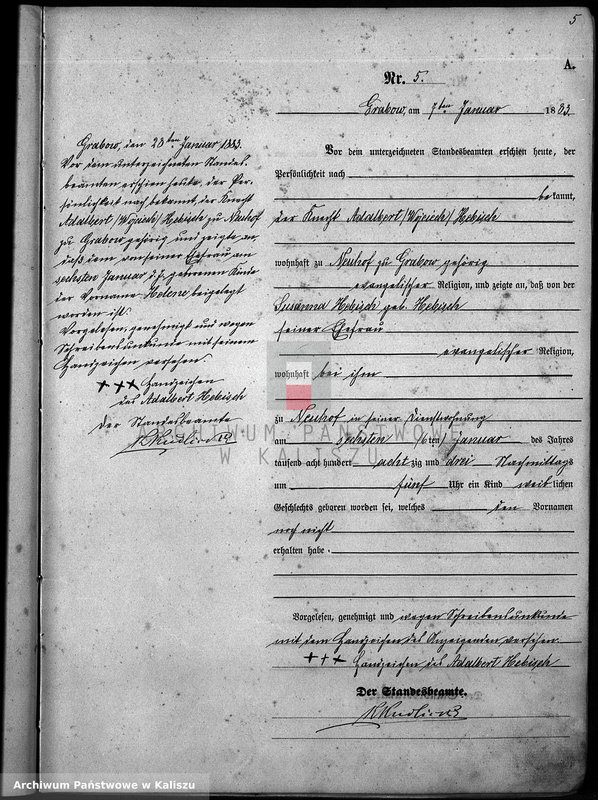 5
A.
Nr. 5.
Grabow, am 7ten Januar 1883.
Vor dem unterzeichneten Standesbeamten erschien heute, der
Persönlichkeit nach
bekannt,
der Knecht Adalbert /Wojciech/ Hebisch
wohnhaft zu Neuhof zu Grabow gehörig
evangelischer Religion, und zeigte an, daß von der
Susanna Hebisch geb. Hebisch
seiner Ehefrau
evangelischer Religion,
wohnhaft bei ihm
zu Neuhof in seiner Dienstwohnung
am sechsten /6ten/ Januar des Jahres
tausend acht hundert achtzig und drei Nachmittags
um fünf Uhr ein Kind weiblichen
Geschlechts geboren worden sei, welches den Vornamen
noch nicht
erhalten habe.
Vorgelesen, genehmigt und wegen Schreibensunkunde
mit dem Handzeichen des Anzeigenden versehen.
+++ Handzeichen des Adalbert Hebisch
Der Standesbeamte.
Grabow, den 23ten Januar 1883.
Vor dem unterzeichneten Standes-
beamten erschien heute, der Per-
sönlichkeit nach bekannt, der Knecht
Adalbert /Wojciech/ Hebisch zu Neuhof
zu Grabow gehörig und zeigte an,
daß dem von seiner Ehefrau am
sechsten Januar d.J. geborenen Kinde
der Vorname Helene beigelegt
worden ist.
Vorgelesen, genehmigt und wegen
Schreibensunkunde mit seinem
Handzeichen versehen.
+++ Handzeichen
des Adalbert Hebisch
Der Standesbeamte
ARCHIWUM PAŃSTWOWE
W KALISZU
Archiwum Państwowe w Kaliszu